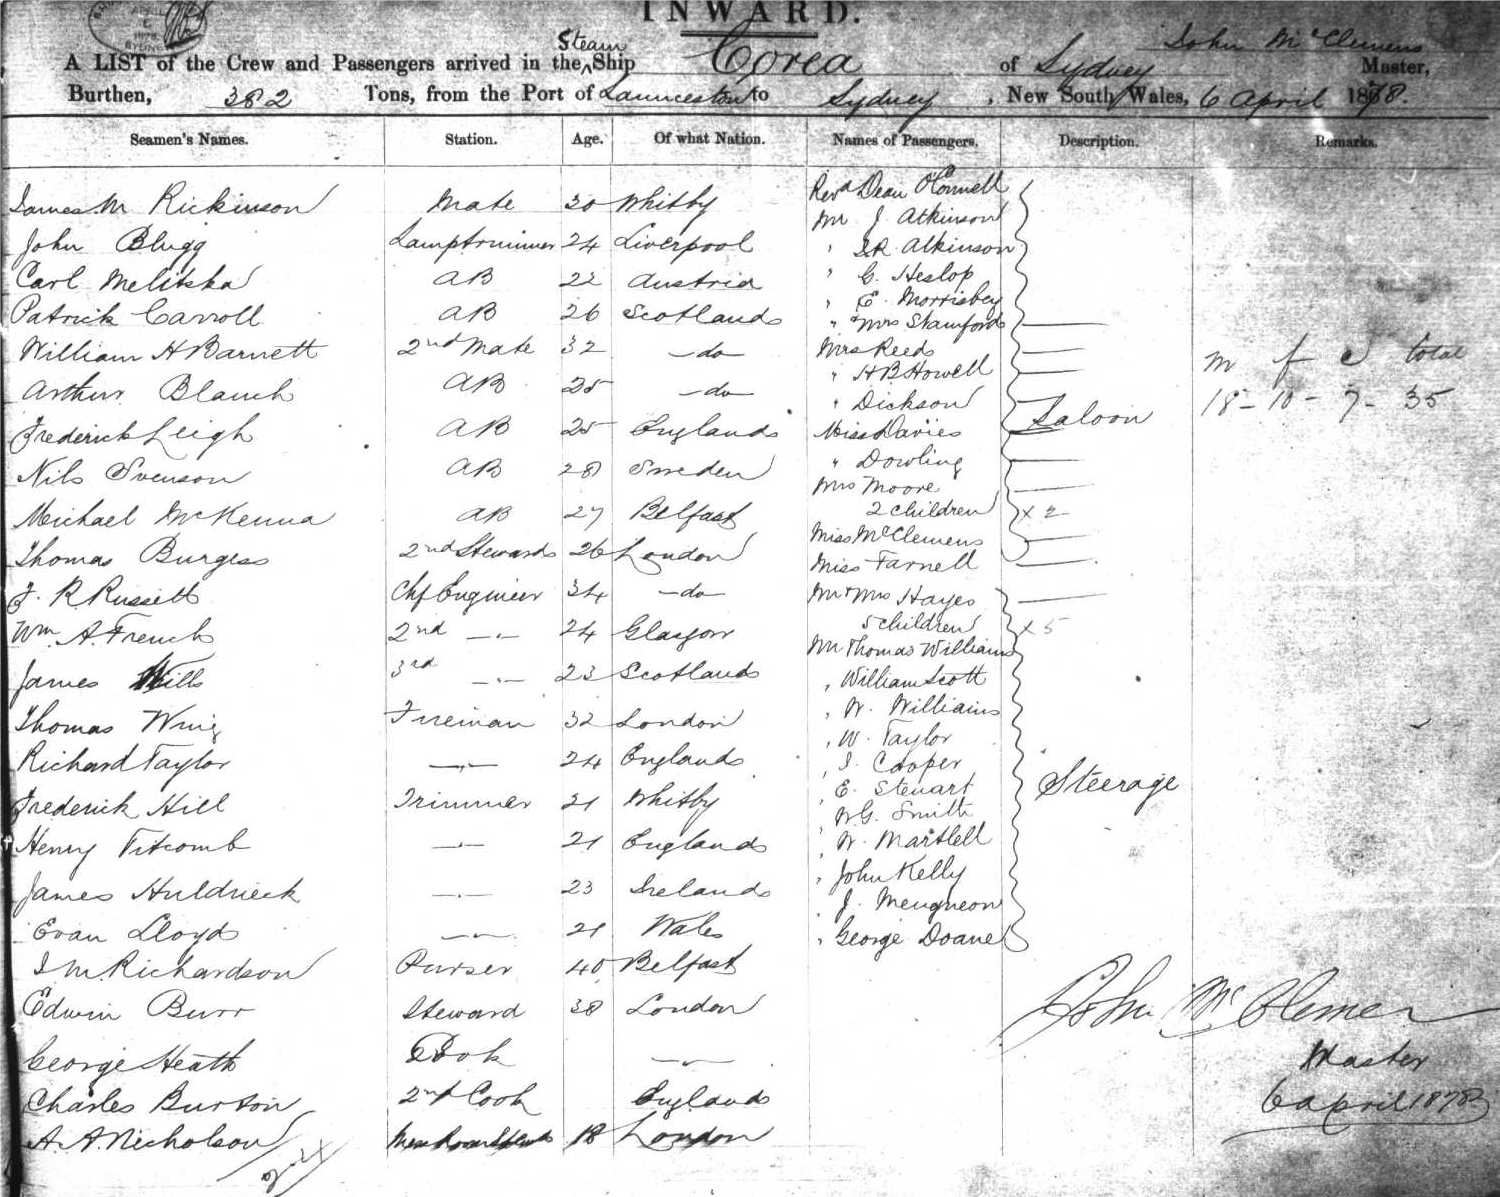 INWARD.
John McClemens
A LIST of the Crew and Passengers arrived in the Steam Ship Corea of Sydney Master,
Burthen, 382 Tons, from the Port of Launceston to Sydney, New South Wales, 6 April 1878.
Seamen's Names. Station. Age. Of what Nation. Names of Passengers. Description. Remarks.
James M Rickinson Mate 30 Whitby
John Blugg Lamptrimmer 24 Liverpool
Carl Melitska AB 22 Austria
Patrick Carroll AB 26 Scotland
William H Barnett 2nd Mate 32 -do-
Arthur Blanch AB 25 -do-
Frederick Leigh AB 25 England
Nils Svenson AB 28 Sweden
Michael McKenna AB 27 Belfast
Thomas Burgess 2nd Steward 26 London
F. R Russell Chf Engineer 34 -do-
Wm A. French 2nd -"- 24 Glasgow
James Mills 3rd -"- 23 Scotland
Thomas Fireman 32 London
Richard Taylor -"- 24 England
Frederick Hill Trimmer 21 Whitby
Henry Titcomb -"- 21 England
James Huldrieck -"- 23 Ireland
Evan Lloyd -"- 21 Wales
J M Richardson Purser 40 Belfast
Edwin Burr Steward 38 London
George Heath Cook -"-
Charles Burton 2nd Cook England
A. A. Nicholson 18 London
Revd Dean O'Connell
Mr J Atkinson
" Atkinson
" G. Heslop
" E. Morrisby
" & Mrs Stamford
Mrs Reed
" H B Howell
" Dickson
Miss Davies
" Dowling
Mrs Moore
2 children x 2
Miss McClemens
Miss Farnell
Saloon
Mr & Mrs Hayes
5 children x 5
Mr Thomas Williams
" William Scott
" W. Williams
" W. Taylor
" J. Cooper
" E. Stewart
" W G. Smith
" W. Martlell
" John Kelly
" J. Meugneon
" George Doane
Steerage
m f c total
18 - 10 - 7 - 35
John McClemens
Master
6 April 1878